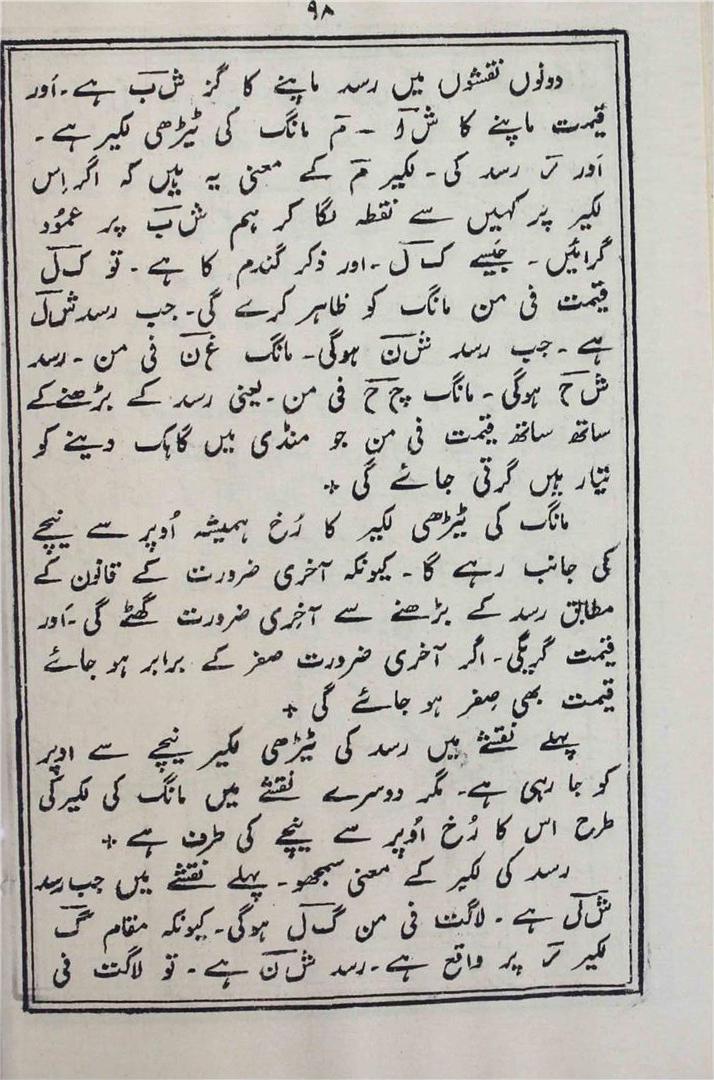 ۹۸
دونوں نقشوں میں رسد ماپنے کا گز ش ب ہے۔ اَور
قیمت ماپنے کا ش ا ۔ مَ مانگ کی ٹیڑھی لکیر ہے ۔
اَور رَ رسد کی۔ لکیر مَ کے معنی یہ ہیں کہ اگر اِس
لکیر پر کہیں سے نقطہ لگا کر ہم ش ب پر عموُد
گرائیں ۔ جیَسے ک ل ۔ اور ذکر گندم کا ہے ۔ تو ک ل
قیمت فی من مانگ کو ظاہر کرے گی۔ جب رسد ش ل
ہے ۔ جب رسد ش ن ہوگی۔ مانگ غ ن فی من ۔ رسد
ش ح ہوگی ۔ مانگ چ ح فی من ۔ یعنی رسد کے بڑھنے کے
ساتھ ساتھ قیمت فی من جو منڈی میں گاہک دینے کو
تیّار ہیں گرتی جائے گی ٭
مانگ کی ٹیڑھی لکیر کا رُخ ہمیشہ اُوپر سے نیچے
کی جانب رہے گا ۔ کیونکہ آخری ضرورت کے قانون کے
مطابق رسد کے بڑھنے سے آخِری ضرورت گھٹے گی ۔ اَور
قیمت گریگی۔ اگر آخری ضرورت صفر کے برابر ہو جائے
قیمت بھی صِفر ہو جائے گی ٭
پہلے نقشے میں رسد کی ٹیڑھی لکیر نیچے سے اوپر
کو جا رہی ہے۔ مگر دوسرے نقشے میں مانگ کی لکیر کی
طرح اس کا رُخ اُوپر سے نیچے کی طرف ہے ٭
رسد کی لکیر کے معنی سمجھو۔ پہلے نقشے میں جب رسد
ش ل ہے ۔ لاگت فی من گ ل ہوگی۔ کیونکہ مقام گ
لکیر رَ پر واقع ہے ۔ رسد ش ن ہے ۔ تو لاگت فی